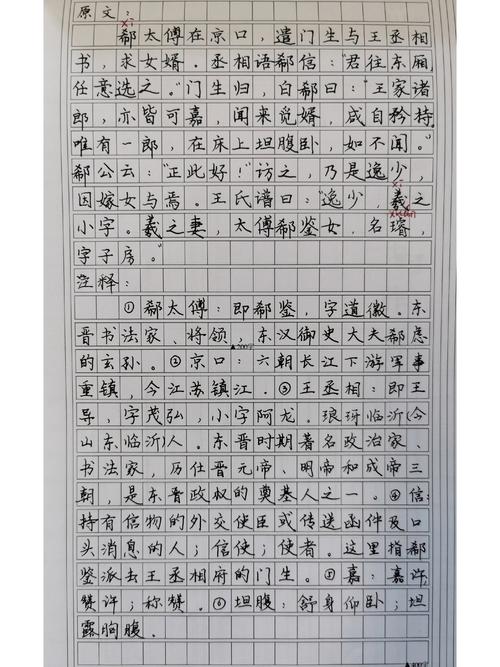 原文:
xī
郗太傅在京口,遣门生与王丞相
书,求女婿。丞相语郗信:"君往东厢,
任意选之。"门生归,白郗曰:"王家诸
郎,亦皆可嘉,闻来觅婿,咸自矜持,
唯有一郎,在床上坦腹卧,如不闻。"
郗公云:"正此好!"访之,乃是逸少,
因嫁女与焉。王氏谱曰:"逸少,羲之
xī
小字。羲之妻,太傅郗鉴女,名璿,
xuán
字子房。"
注释:
①郗太傅:即郗鉴,字道徽。东
晋书法家、将领。东汉御史大夫郗虑
▲200字
的玄孙。②京口:六朝长江下游军事
重镇,今江苏镇江。③王丞相:即王
导,字茂弘,小字阿龙。琅玡临沂(今
山东临沂)人。东晋时期著名政治家、
书法家,历仕晋元帝、明帝和成帝三
朝,是东晋政权的奠基人之一。④信:
持有信物的外交使臣或传送函件及口
头消息的人;信使;使者。这里指郗
鉴派去王丞相府的门生。⑤嘉:嘉许,
赞许;称赞。⑥坦腹:舒身仰卧;坦
露胸腹.
▲400字